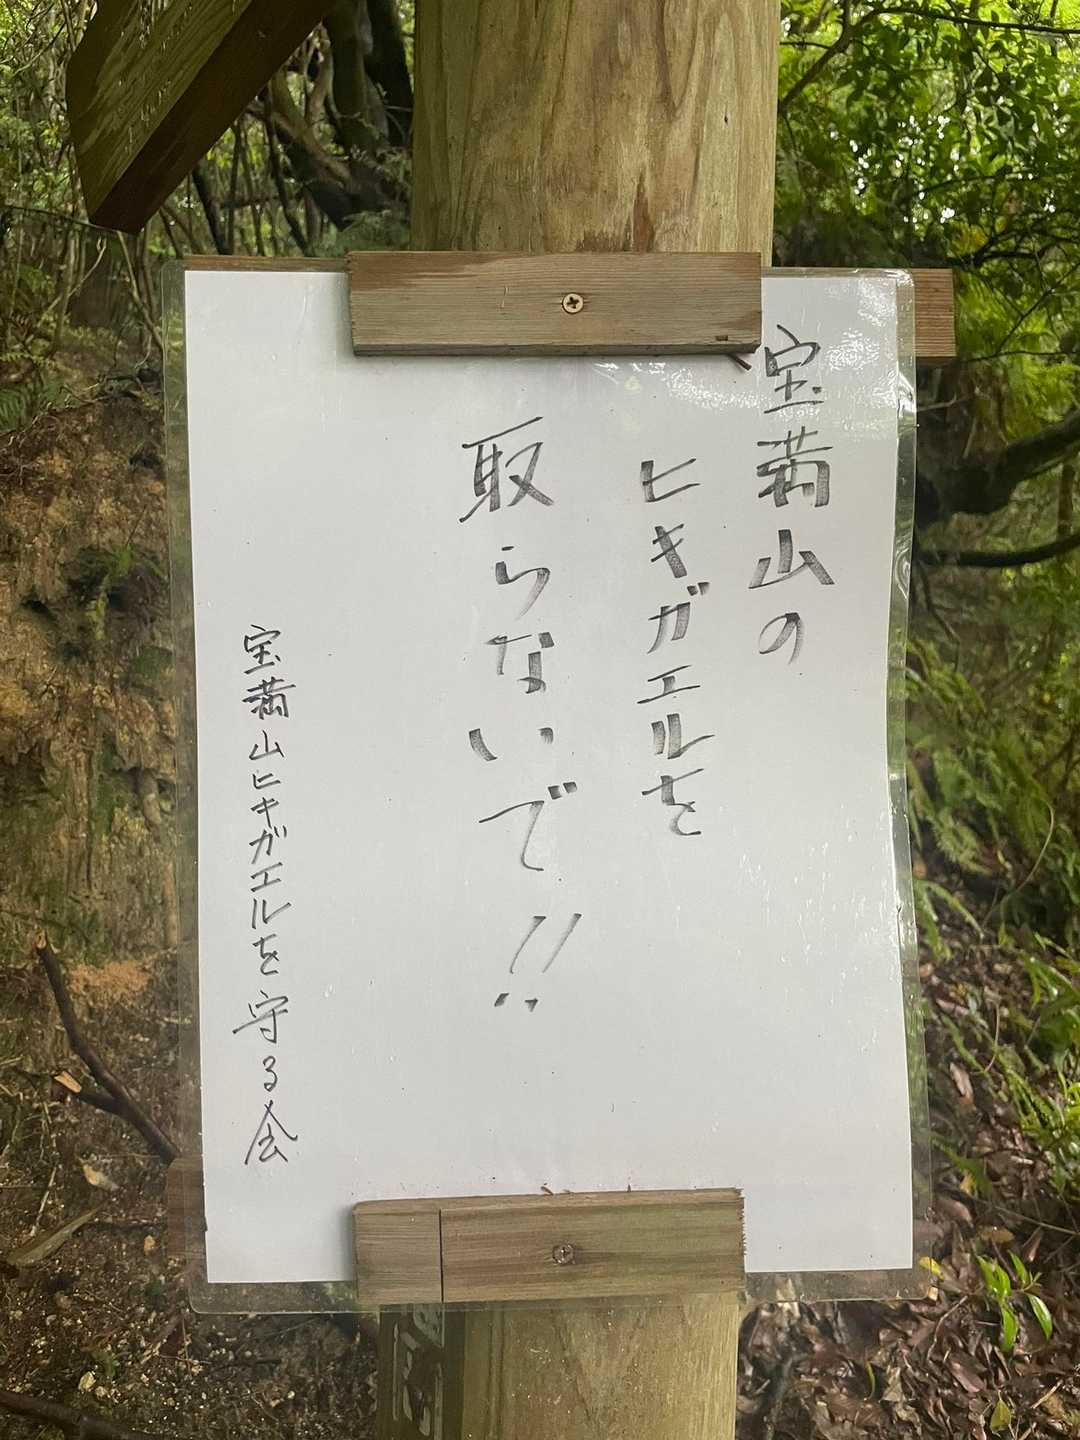 宝満山の
ヒキガエルを
取らないで!!
宝満山ヒキガエルを守る会